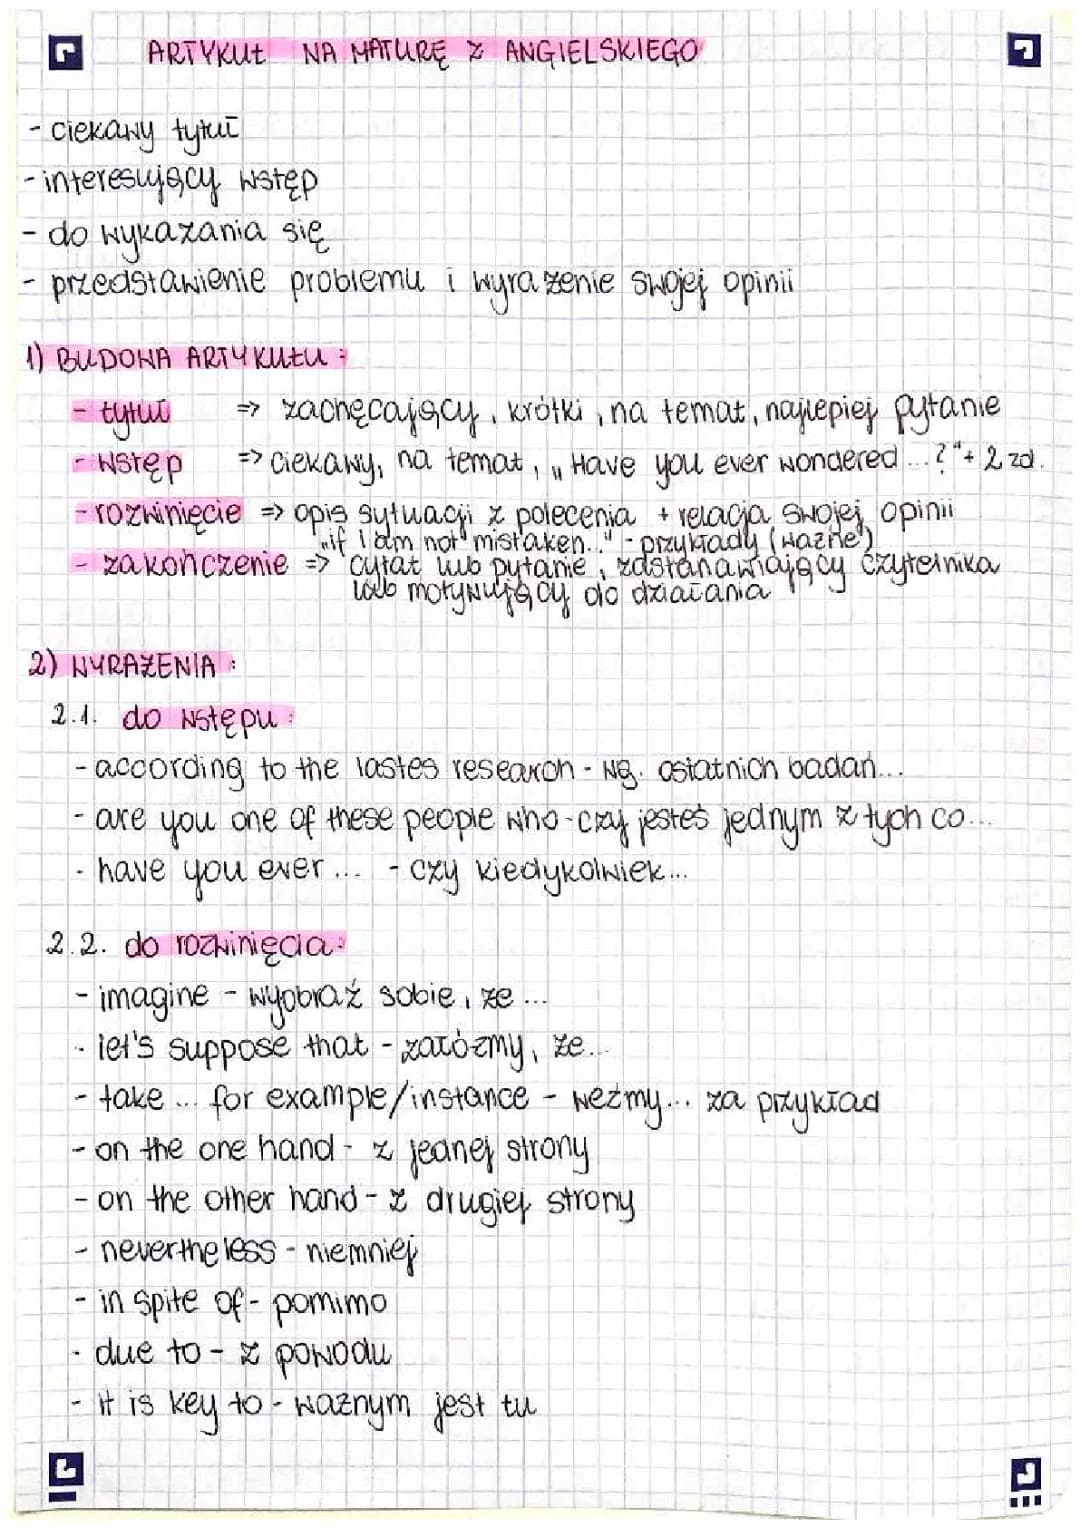 ARTYKUŁ NA MATURĘ Z ANGIELSKIEGO
- ciekawy tytuł
- interesujący wstęp
- do wykazania się
- przedstawienie problemu i wyrażenie swojej opinii
1) BUDOWA ARTYKUŁU:
- tytuł => zachęcający, krótki, na temat, najlepiej pytanie
- wstęp => ciekawy, na temat, „Have you ever wondered...?"+ 2 zd.
- rozwinięcie => opis sytuacji z polecenia + relacja swojej opinii
„if I am not mistaken..." - przykłady (ważne)
- zakończenie => cytat lub pytanie, zastanawiający czytelnika
lub motywujący do działania
2) WYRAŻENIA:
2.1. do wstępu:
- according to the lastes research - wg. ostatnich badań...
- are you one of these people who - czy jesteś jednym z tych co...
- have you ever... - czy kiedykolwiek...
2.2. do rozwinięcia:
- imagine - wyobraź sobie, że...
- let's suppose that - załóżmy, że...
- take... for example/instance - weźmy... za przykład
- on the one hand - z jednej strony
- on the other hand - z drugiej strony
- nevertheless - niemniej
- in spite of - pomimo
- due to - z powodu
- it is key to - ważnym jest tu